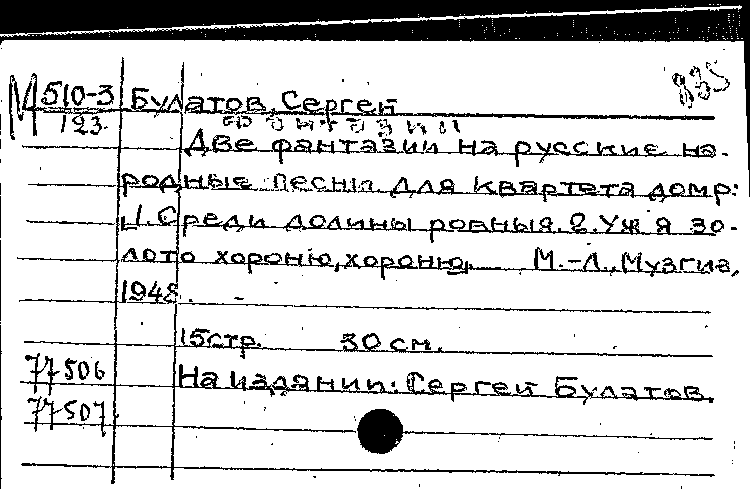 835
М 510-3 Булатов, Сергей
123
Две фантазии на русские на-
родные песни для квартета домр:
1. Среди долины ровныя. 2. Уж я зо-
лото хороню, хороню. М.-Л., Музгиз,
1948.
15 стр. 30 см.
77506
На издании: Сергей Булатов.
77507